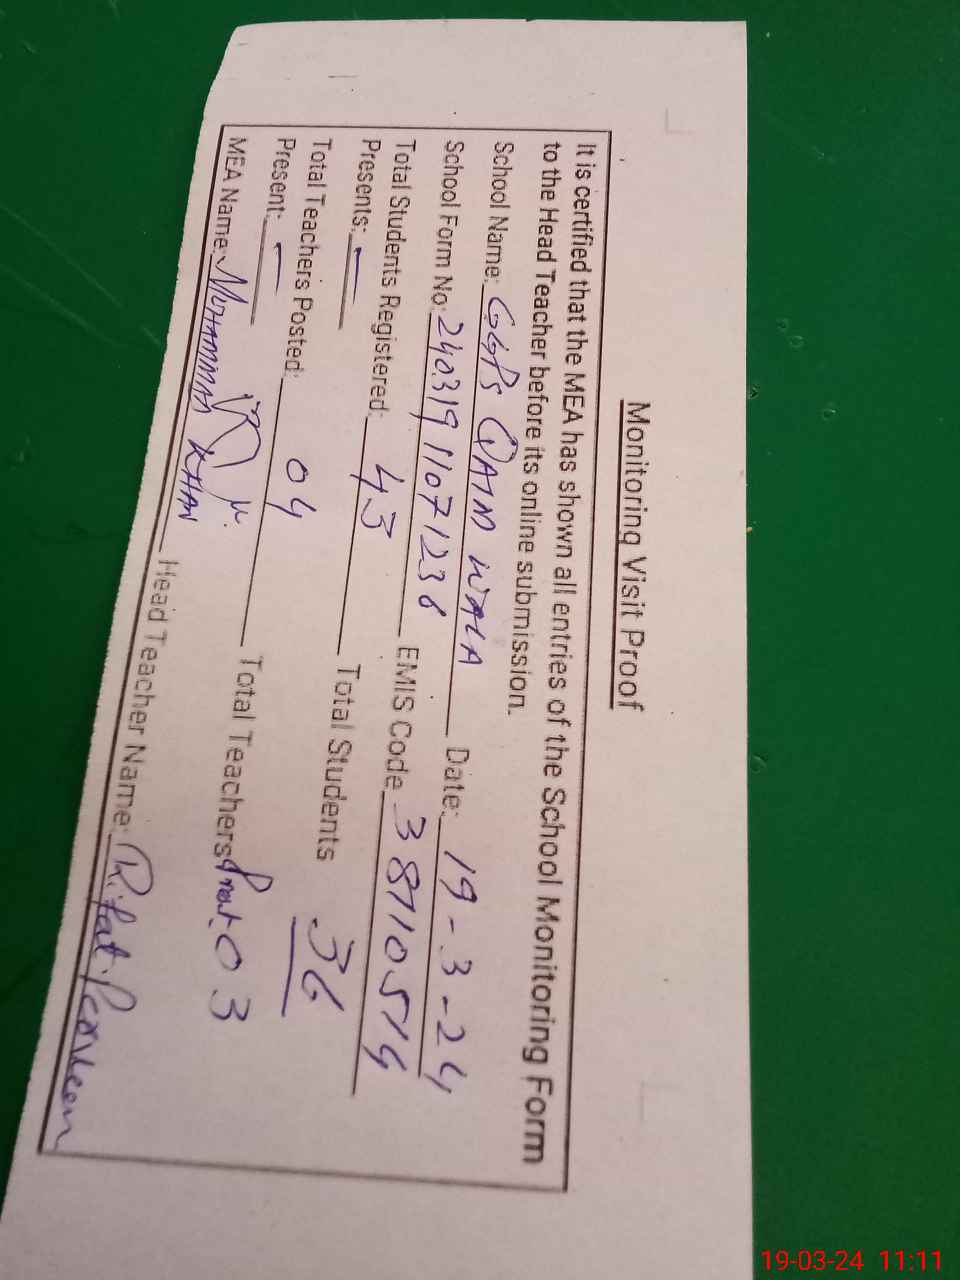 Monitoring Visit Proof
It is certified that the MEA has shown all entries of the School Monitoring Form
to the Head Teacher before its online submission.
School Name: GGPS QAIM WALA Date: 19-3-24
School Form No: 240319 11071238 EMIS Code 38710514
Total Students Registered: 43 Total Students 36
Presents:
Total Teachers Posted: 04 Total Teachers 03
Present:
MEA Name: MUHAMMAD KHAN Head Teacher Name: Rifat Parveen
19-03-24 11:11